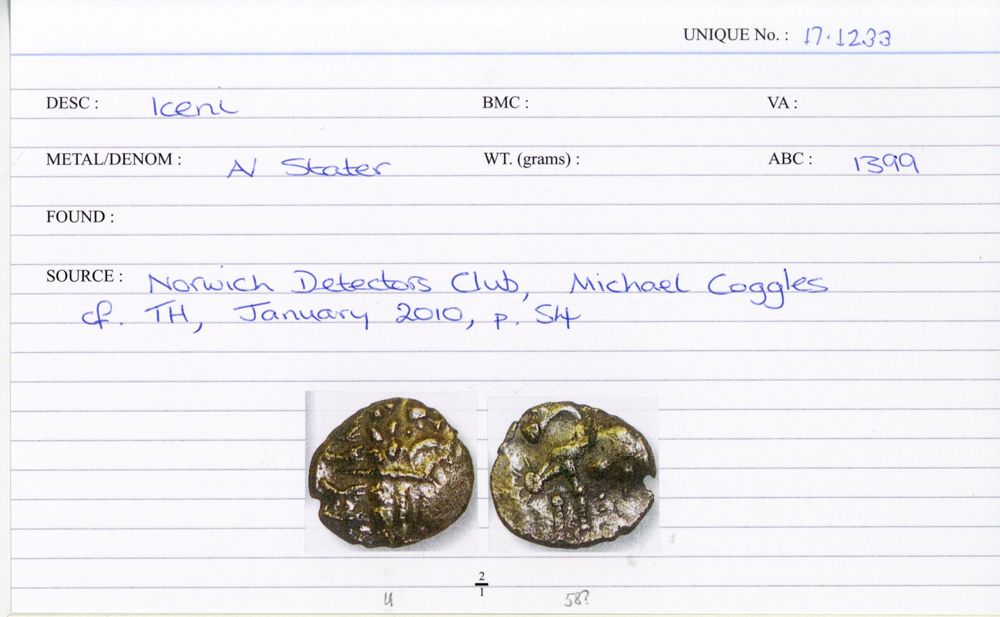 UNIQUE No. : 17.1233
DESC : Iceni BMC : VA :
METAL/DENOM : AV Stater WT. (grams) : ABC : 1399
FOUND :
SOURCE : Norwich Detectors Club, Michael Coggles
cf. TH, January 2010, p. 54
2
1
58?